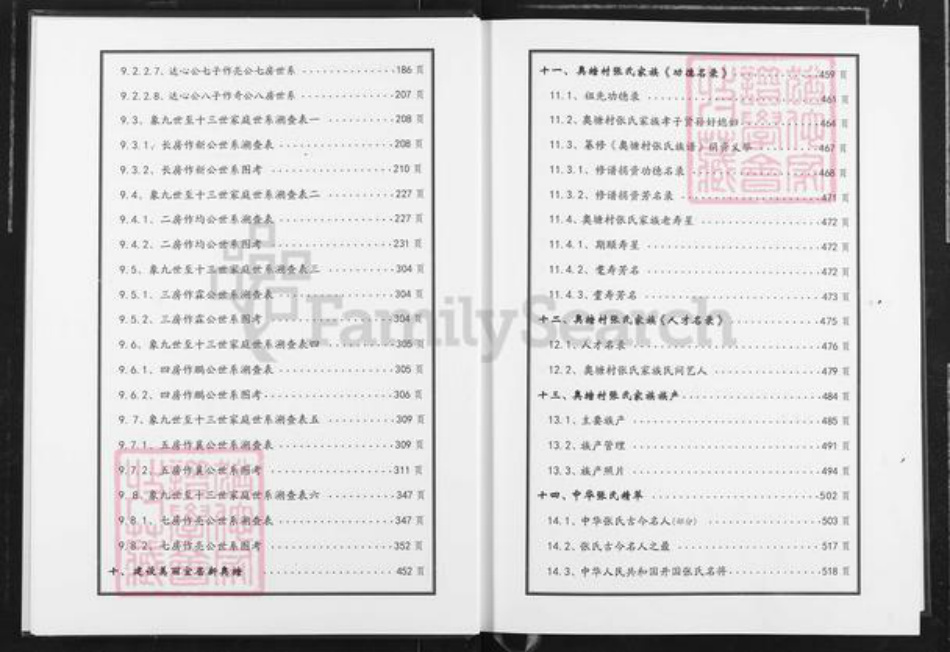 9.2.2.7. 达心公七子作亮公七房世系 ·········186 页
9.2.2.8. 达心公八子作奇公八房世系 ·········207 页
9.3. 象九世至十三世家庭世系溯查表一 ·········208 页
9.3.1. 长房作新公世系溯查表 ·········208 页
9.3.2. 长房作新公世系图考 ·········210 页
9.4. 象九世至十三世家庭世系溯查表二 ·········227 页
9.4.1. 二房作均公世系溯查表 ·········227 页
9.4.2. 二房作均公世系图考 ·········231 页
9.5. 象九世至十三世家庭世系溯查表三 ·········304 页
9.5.1. 三房作霖公世系溯查表 ·········304 页
9.5.2. 三房作霖公世系图考 ·········304 页
9.6. 象九世至十三世家庭世系溯查表四 ·········305 页
9.6.1. 四房作鹏公世系溯查表 ·········305 页
9.6.2. 四房作鹏公世系图考 ·········306 页
9.7. 象九世至十三世家庭世系溯查表五 ·········309 页
9.7.1. 五房作襄公世系溯查表 ·········309 页
9.7.2. 五房作襄公世系图考 ·········311 页
9.8. 象九世至十三世家庭世系溯查表六 ·········347 页
9.8.1. 七房作亮公世系溯查表 ·········347 页
9.8.2. 七房作亮公世系图考 ·········352 页
十、建设美丽宜居新奥塘 ·········452 页
十一、奥塘村张氏家族《功德名录》 ·········459 页
11.1、祖先功德录 ·········461 页
11.2、奥塘村张氏家族孝子贤孙好媳妇 ·········464 页
11.3、纂修《奥塘村张氏族谱》捐资义举 ·········467 页
11.3.1、修谱捐资功德名录 ·········468 页
11.3.2、修谱捐资芳名录 ·········471 页
11.4、奥塘村张氏家族老寿星 ·········472 页
11.4.1、期颐寿星 ·········472 页
11.4.2、耄寿芳名 ·········472 页
11.4.3、耋寿芳名 ·········473 页
十二、奥塘村张氏家族《人才名录》 ·········475 页
12.1、人才名录 ·········476 页
12.2、奥塘村张氏家族民间艺人 ·········479 页
十三、奥塘村张氏家族族产 ·········484 页
13.1、主要族产 ·········485 页
13.2、族产管理 ·········491 页
13.3、族产照片 ·········494 页
十四、中华张氏精萃 ·········502 页
14.1、中华张氏古今名人(部分) ·········503 页
14.2、张氏古今名人之最 ·········517 页
14.3、中华人民共和国开国张氏名将 ·········518 页
FamilySearch